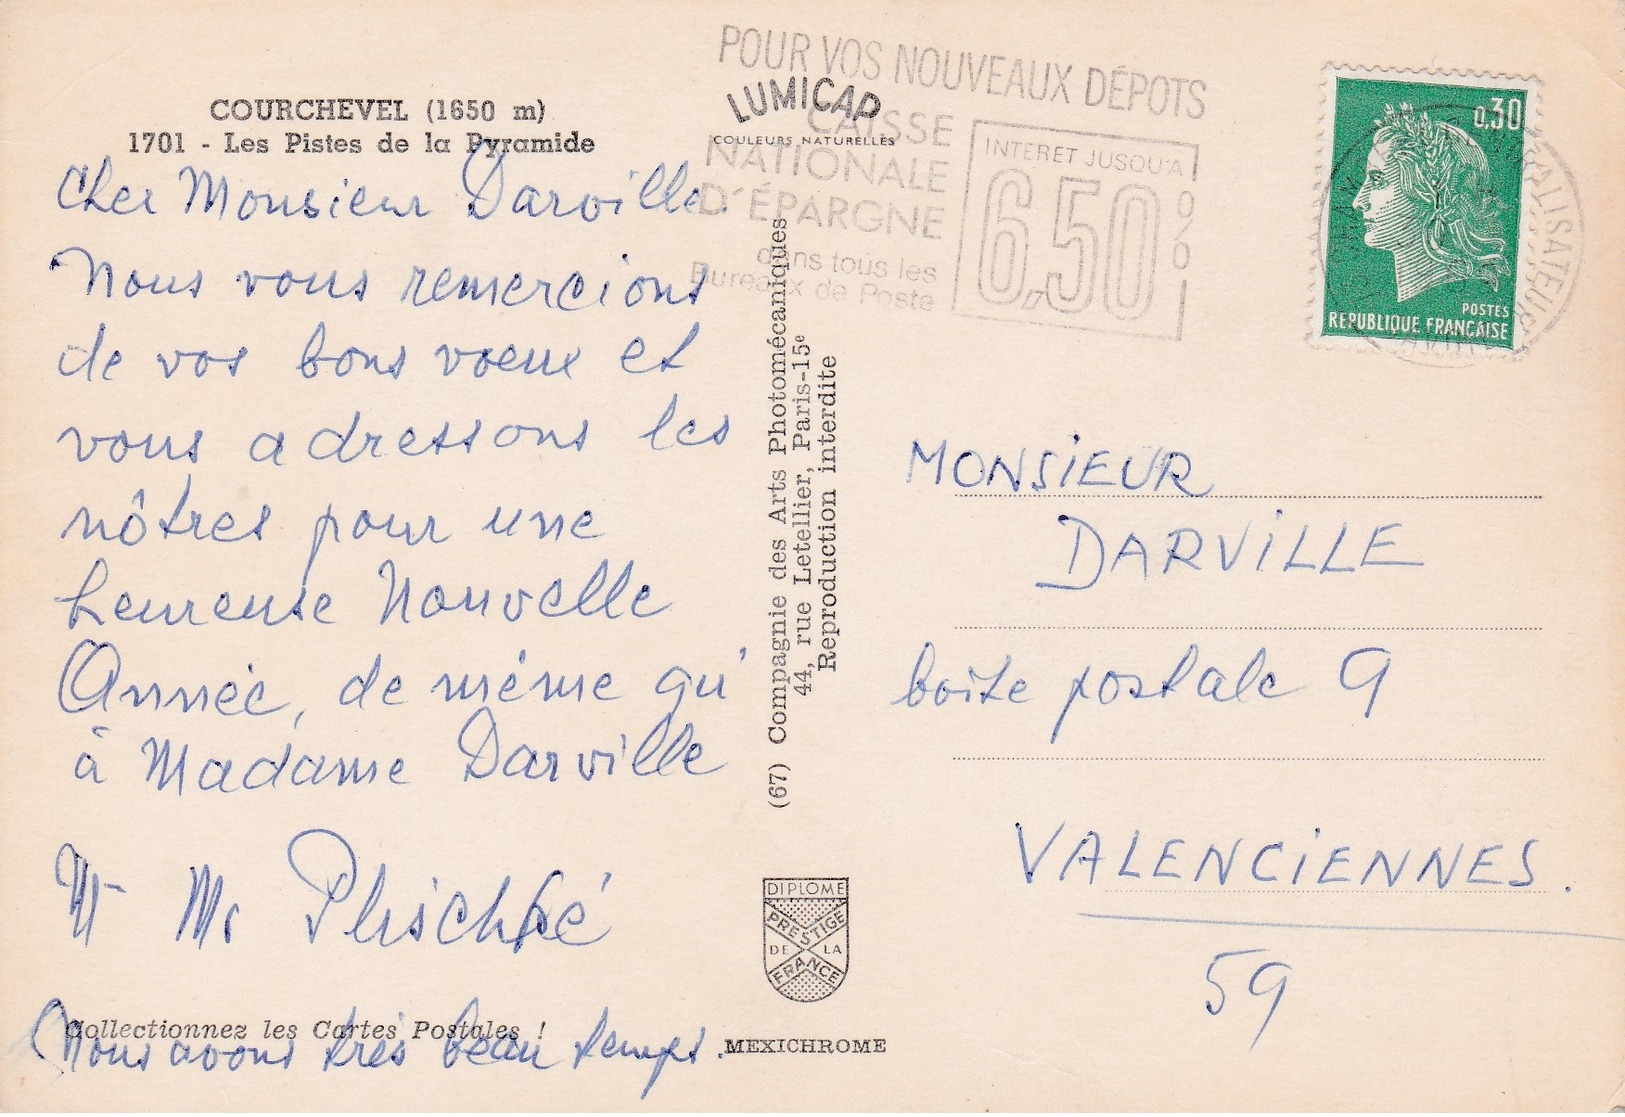 COURCHEVEL (1650 m)
1701 - Les Pistes de la Pyramide
Cher Monsieur Darville.
Nous vous remercions
de vos bons voeux et
vous adressons les
nôtres pour une
heureuse Nouvelle
Année, de même qu'
à Madame Darville
Collectionnez les Cartes Postales !
Nous avons très beau temps.
LUMICAP
COULEURS NATURELLES
POUR VOS NOUVEAUX DÉPOTS
CAISSE
NATIONALE
D'ÉPARGNE
dans tous les
Bureaux de Poste
INTERET JUSQU'A
6,50%
(67) Compagnie des Arts Photomécaniques
44, rue Letellier, Paris-15e
Reproduction interdite
DIPLOME
PRESTIGE
DE LA
FRANCE
MEXICHROME
0,30
POSTES
REPUBLIQUE FRANÇAISE
MONSIEUR
DARVILLE
boîte postale 9
VALENCIENNES.
59